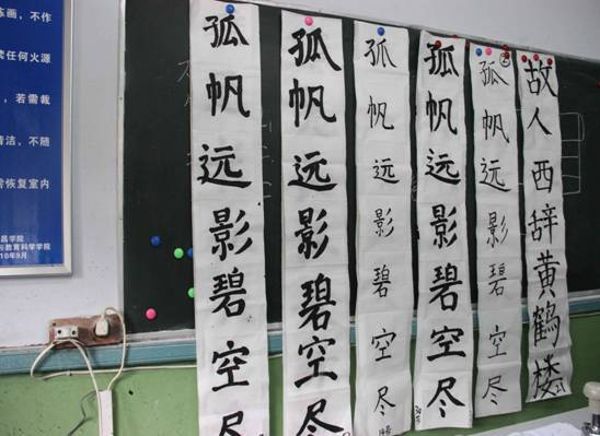 冻画，不作
任何火源
，若需裁
清洁，不随
恢复室内
昌学院
教育科学学院
10年9月
孤帆远影碧空尽
孤帆远影碧空尽
孤帆远影碧空尽
孤帆远影碧空尽
孤帆远影碧空尽
故人西辞黄鹤楼